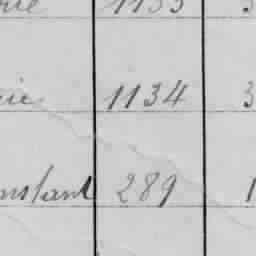 1133 3
rie 1134 3
nstant 289 1